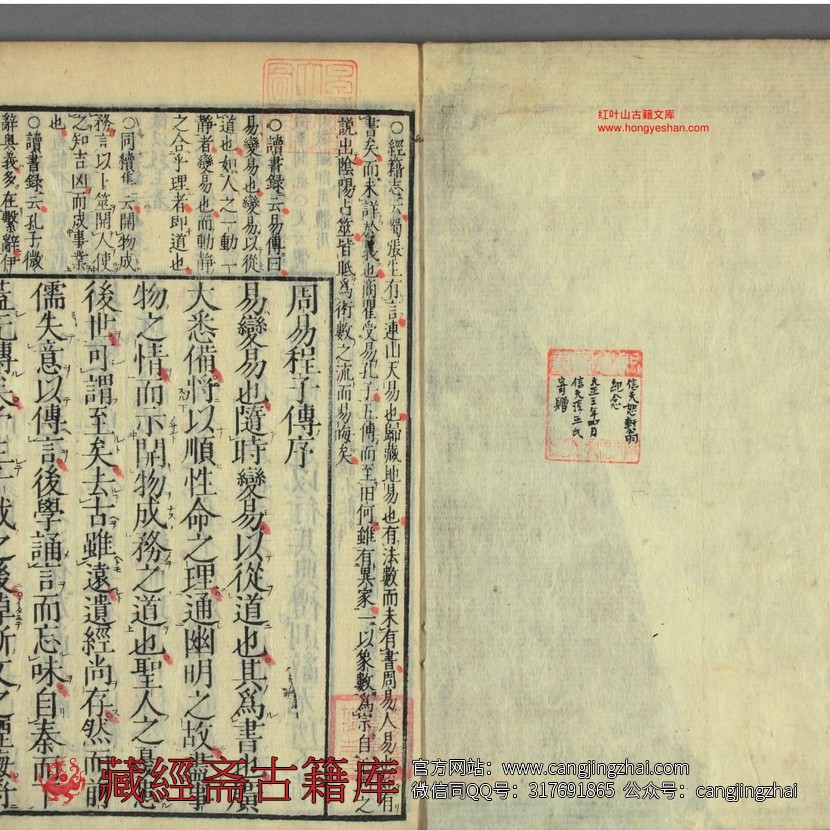 红叶山古籍文库
www.hongyeshan.com
信天恕軒翁
紀念
大正三年四月
寄贈
○經籍志云蜀張生有言連山天易也歸藏地易也有法數而未有書周易人易也有
書矣而未詳於義也商瞿受易孔子五傳而至田何雖有異家一以象數為宗自
說出陰陽占筮皆賊為術數之流而易晦矣
○讀書錄云易傳曰
易變易也變易以從
道也如人之一動一
靜者變易也而動靜
之合乎理者即道也
○同續集云開物成
務言以卜筮開人使
之知吉凶而成事業
也
○讀書錄云孔子微
辭奧義多在繫辭伊
周易程子傳序
易變易也隨時變易以從道也其為書也廣
大悉備將以順性命之理通幽明之故盡事
物之情而示開物成務之道也聖人之憂患
後世可謂至矣去古雖遠遺經尚存然而前
儒失意以傳言後學誦言而忘味自秦而
蓋无傳矣予生千載之後悼斯文之湮晦
藏經斋古籍库
官方网站：www.cangjingzhai.com
微信同QQ号：317691865 公众号：cangjingzhai